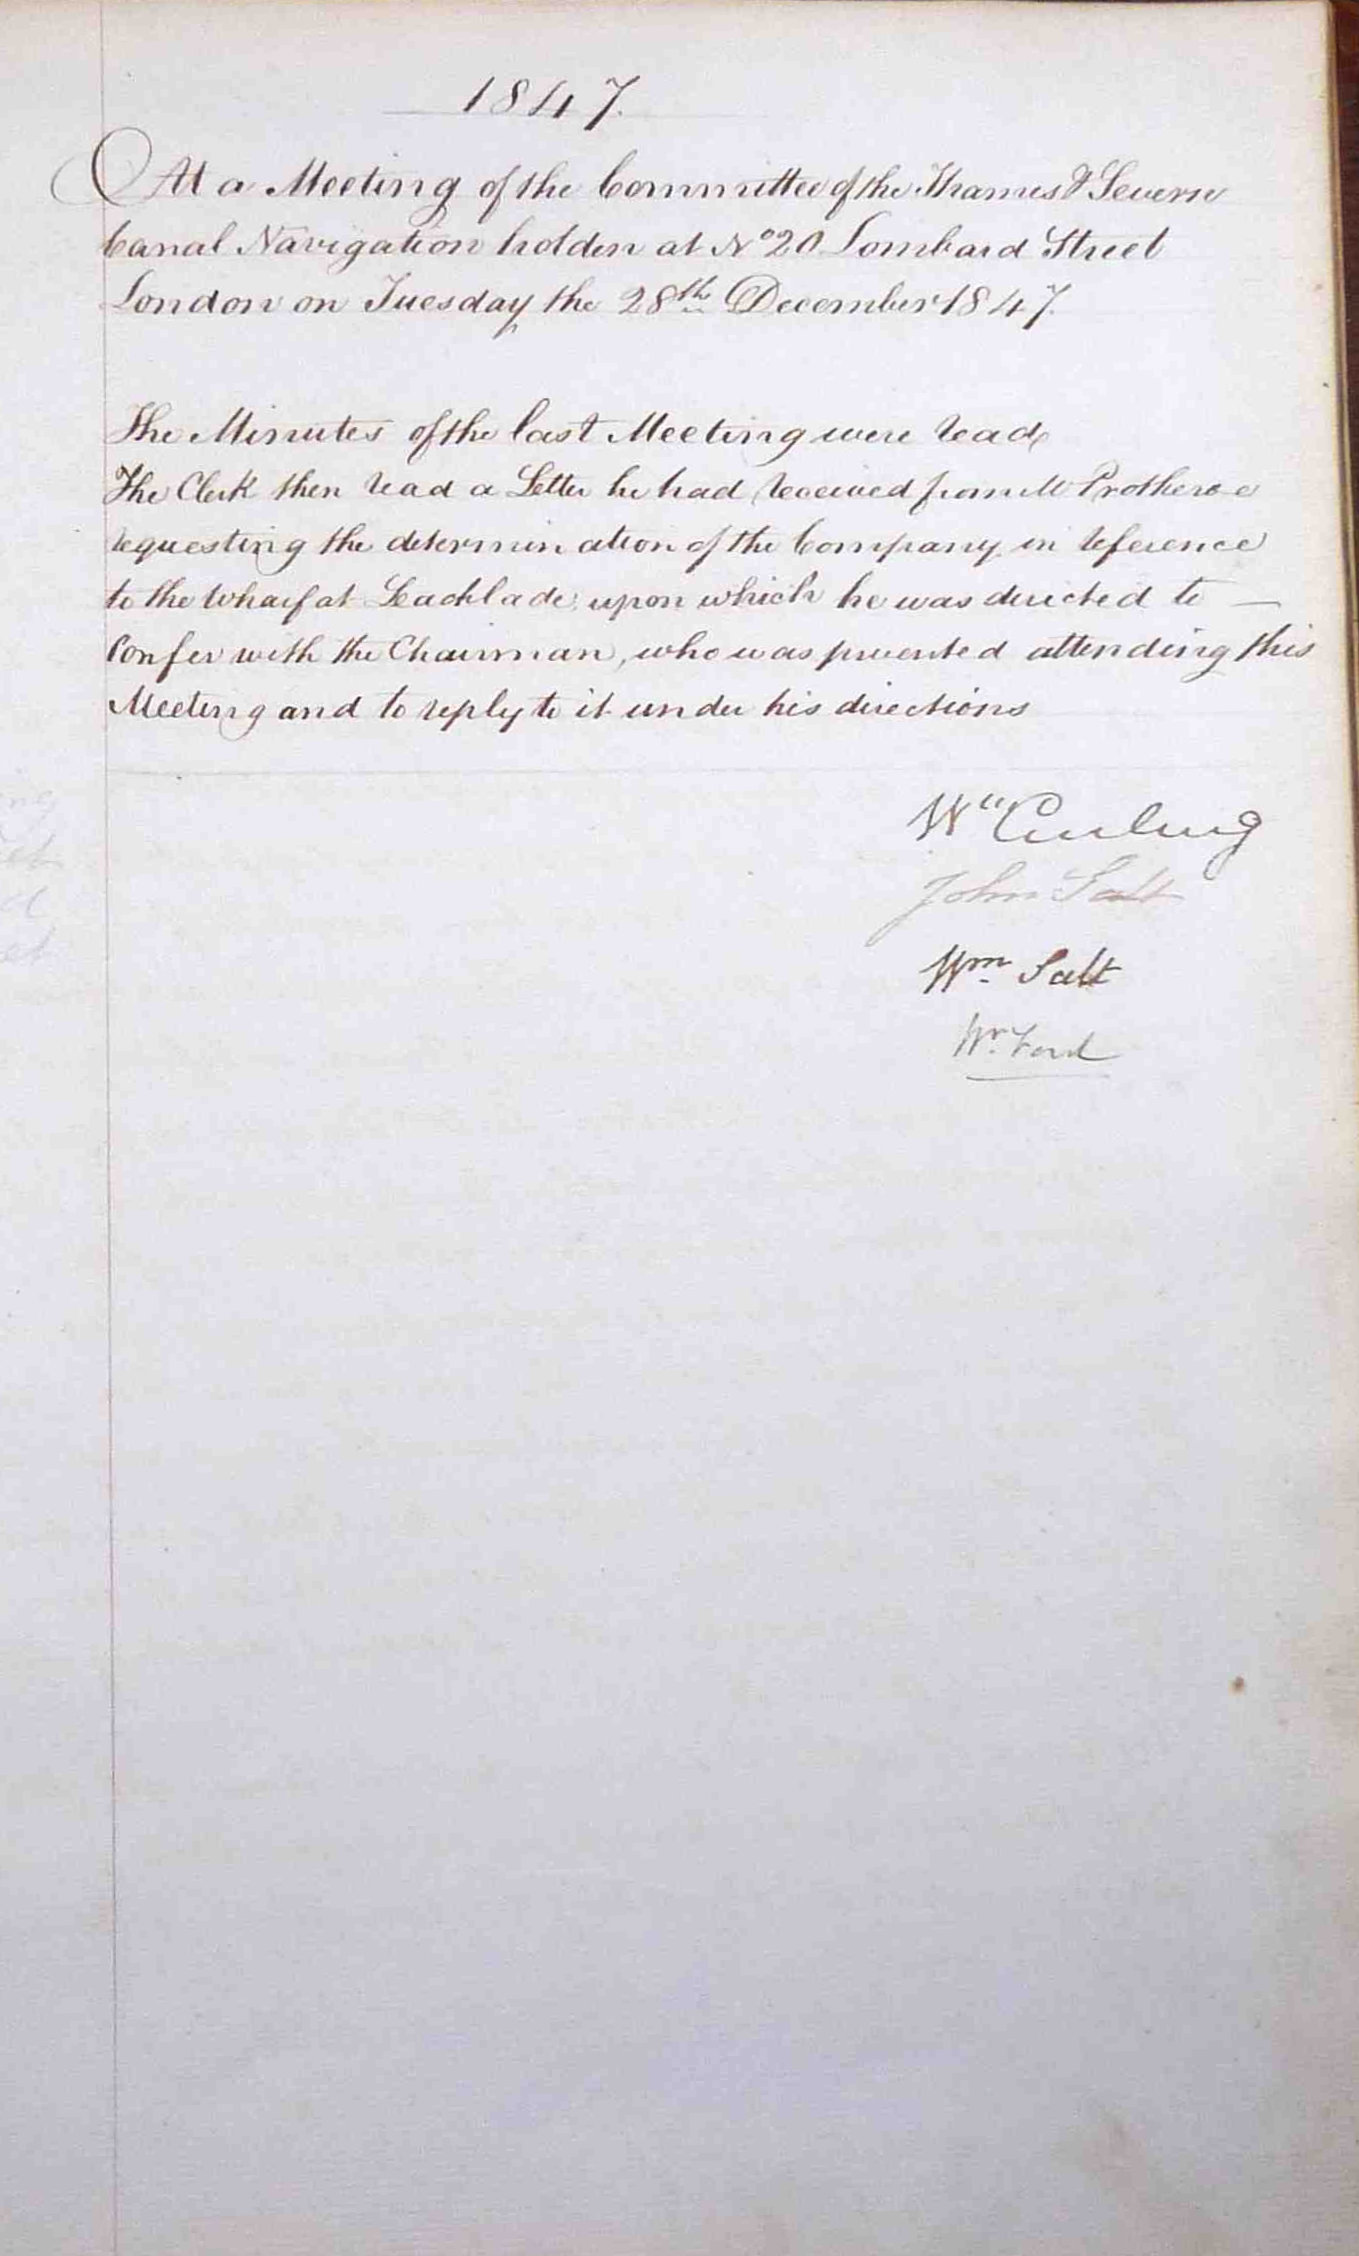 1847.
At a Meeting of the Committee of the Thames & Severn
Canal Navigation holden at No 20 Lombard Street
London on Tuesday the 28th December 1847.
The Minutes of the last Meeting were read
The Clerk then read a Letter he had received from Mr Protheroe
requesting the determination of the Company in reference
to the Wharf at Leachlade, upon which he was directed to —
Confer with the Chairman, who was prevented attending this
Meeting and to reply to it under his directions
Wm Curling
John Salt
Wm Salt
Wm Ford